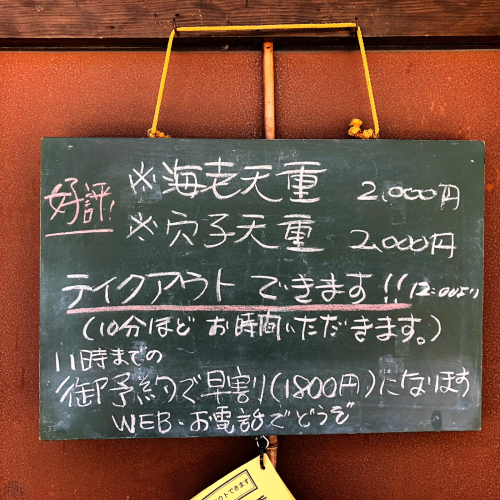 好評! ※海老天重 2,000円
※穴子天重 2,000円
テイクアウトできます!! 12:00より
(10分ほど お時間いただきます。)
11時までの
御予約で早割(1800円)になります
WEB・お電話でどうぞ
ウトできます